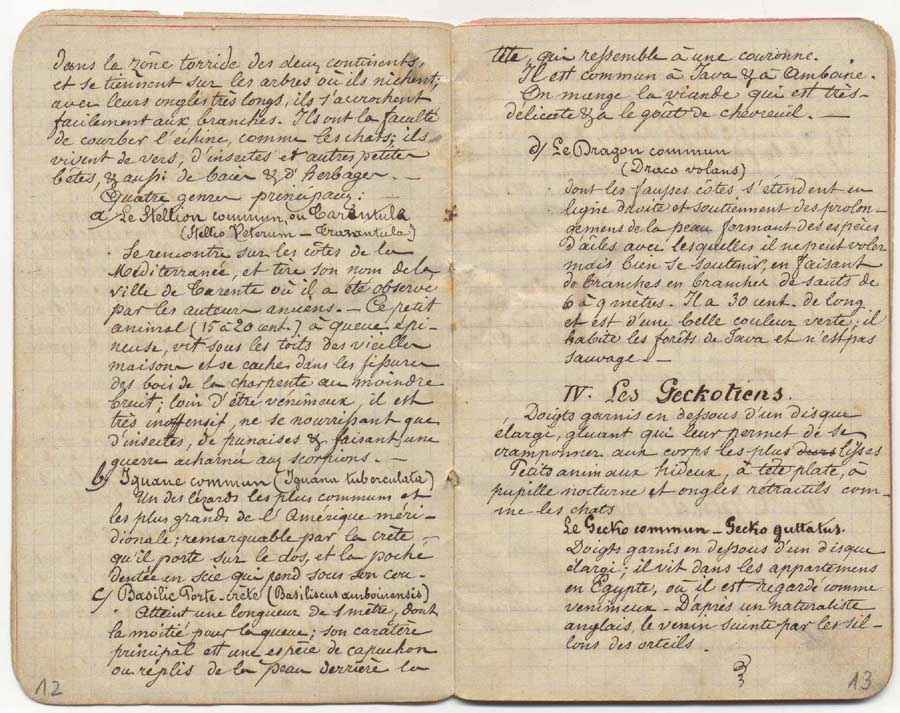 dans la zône torride des deux continents,
et se tiennent sur les arbres où ils nichent;
avec leurs ongles très longs, ils s'accrochent
facilement aux branches. Ils ont la faculté
de courber l'échine, comme les chats; ils
vivent de vers, d'insectes et autres petites
bêtes, & aussi de baies & d'herbages.
Quatre genres principaux:
a) Le Stellion commun, ou Tarentula
(Stellio Veterum – Tarantula)
Se rencontre sur les côtes de la
Méditerranée, et tire son nom de la
ville de Tarente où il a été observé
par les auteurs anciens. – Ce petit
animal (15 à 20 cent.) à queue épi-
neuse, vit sous les toits des vieilles
maisons et se cache dans les fissures
des bois de la charpente au moindre
bruit; loin d'être venimeux, il est
très inoffensif, ne se nourrissant que
d'insectes, de punaises & faisant une
guerre acharnée aux scorpions. –
b) Iguane commun (Iguana tuberculata)
Un des lézards les plus communs et
les plus grands de l'Amérique méri-
dionale; remarquable par la crête
qu'il porte sur le dos, et la poche
dentée en scie qui pend sous son cou.
c) Basilic Porte-crête (Basiliscus amboinensis)
Atteint une longueur de 1 mètre, dont
la moitié pour la queue; son caractère
principal est une espèce de capuchon
ou réplis de la peau derrière la
12
tête, qui ressemble à une couronne.
Il est commun à Java & à Amboine.
On mange la viande qui est très-
délicate & a le goût de chevreuil. –
d) Le Dragon commun
(Draco volans)
dont les fausses côtes s'étendent en
ligne droite et soutiennent des prolon-
gemens de la peau formant des espèces
d'ailes avec lesquelles il ne peut voler
mais bien se soutenir, en faisant
de branches en branches de sauts de
6 à 9 mètres. Il a 30 cent. de long
et est d'une belle couleur verte; il
habite les forêts de Java et n'est pas
sauvage. –
IV. Les Geckotiens.
Doigts garnis en dessous d'un disque
élargi, gluant qui leur permet de se
cramponner aux corps les plus durs lisses
Petits animaux hideux, à tête plate, à
pupille nocturne et ongles rétractils com-
me les chats
Le Gecko commun – Gecko guttatus.
Doigts garnis en dessous d'un disque
élargi; il vit dans les appartemens
en Egypte, où il est regardé comme
venimeux – D'après un naturaliste
anglais, le venin suinte par les sil-
lons des orteils.
13